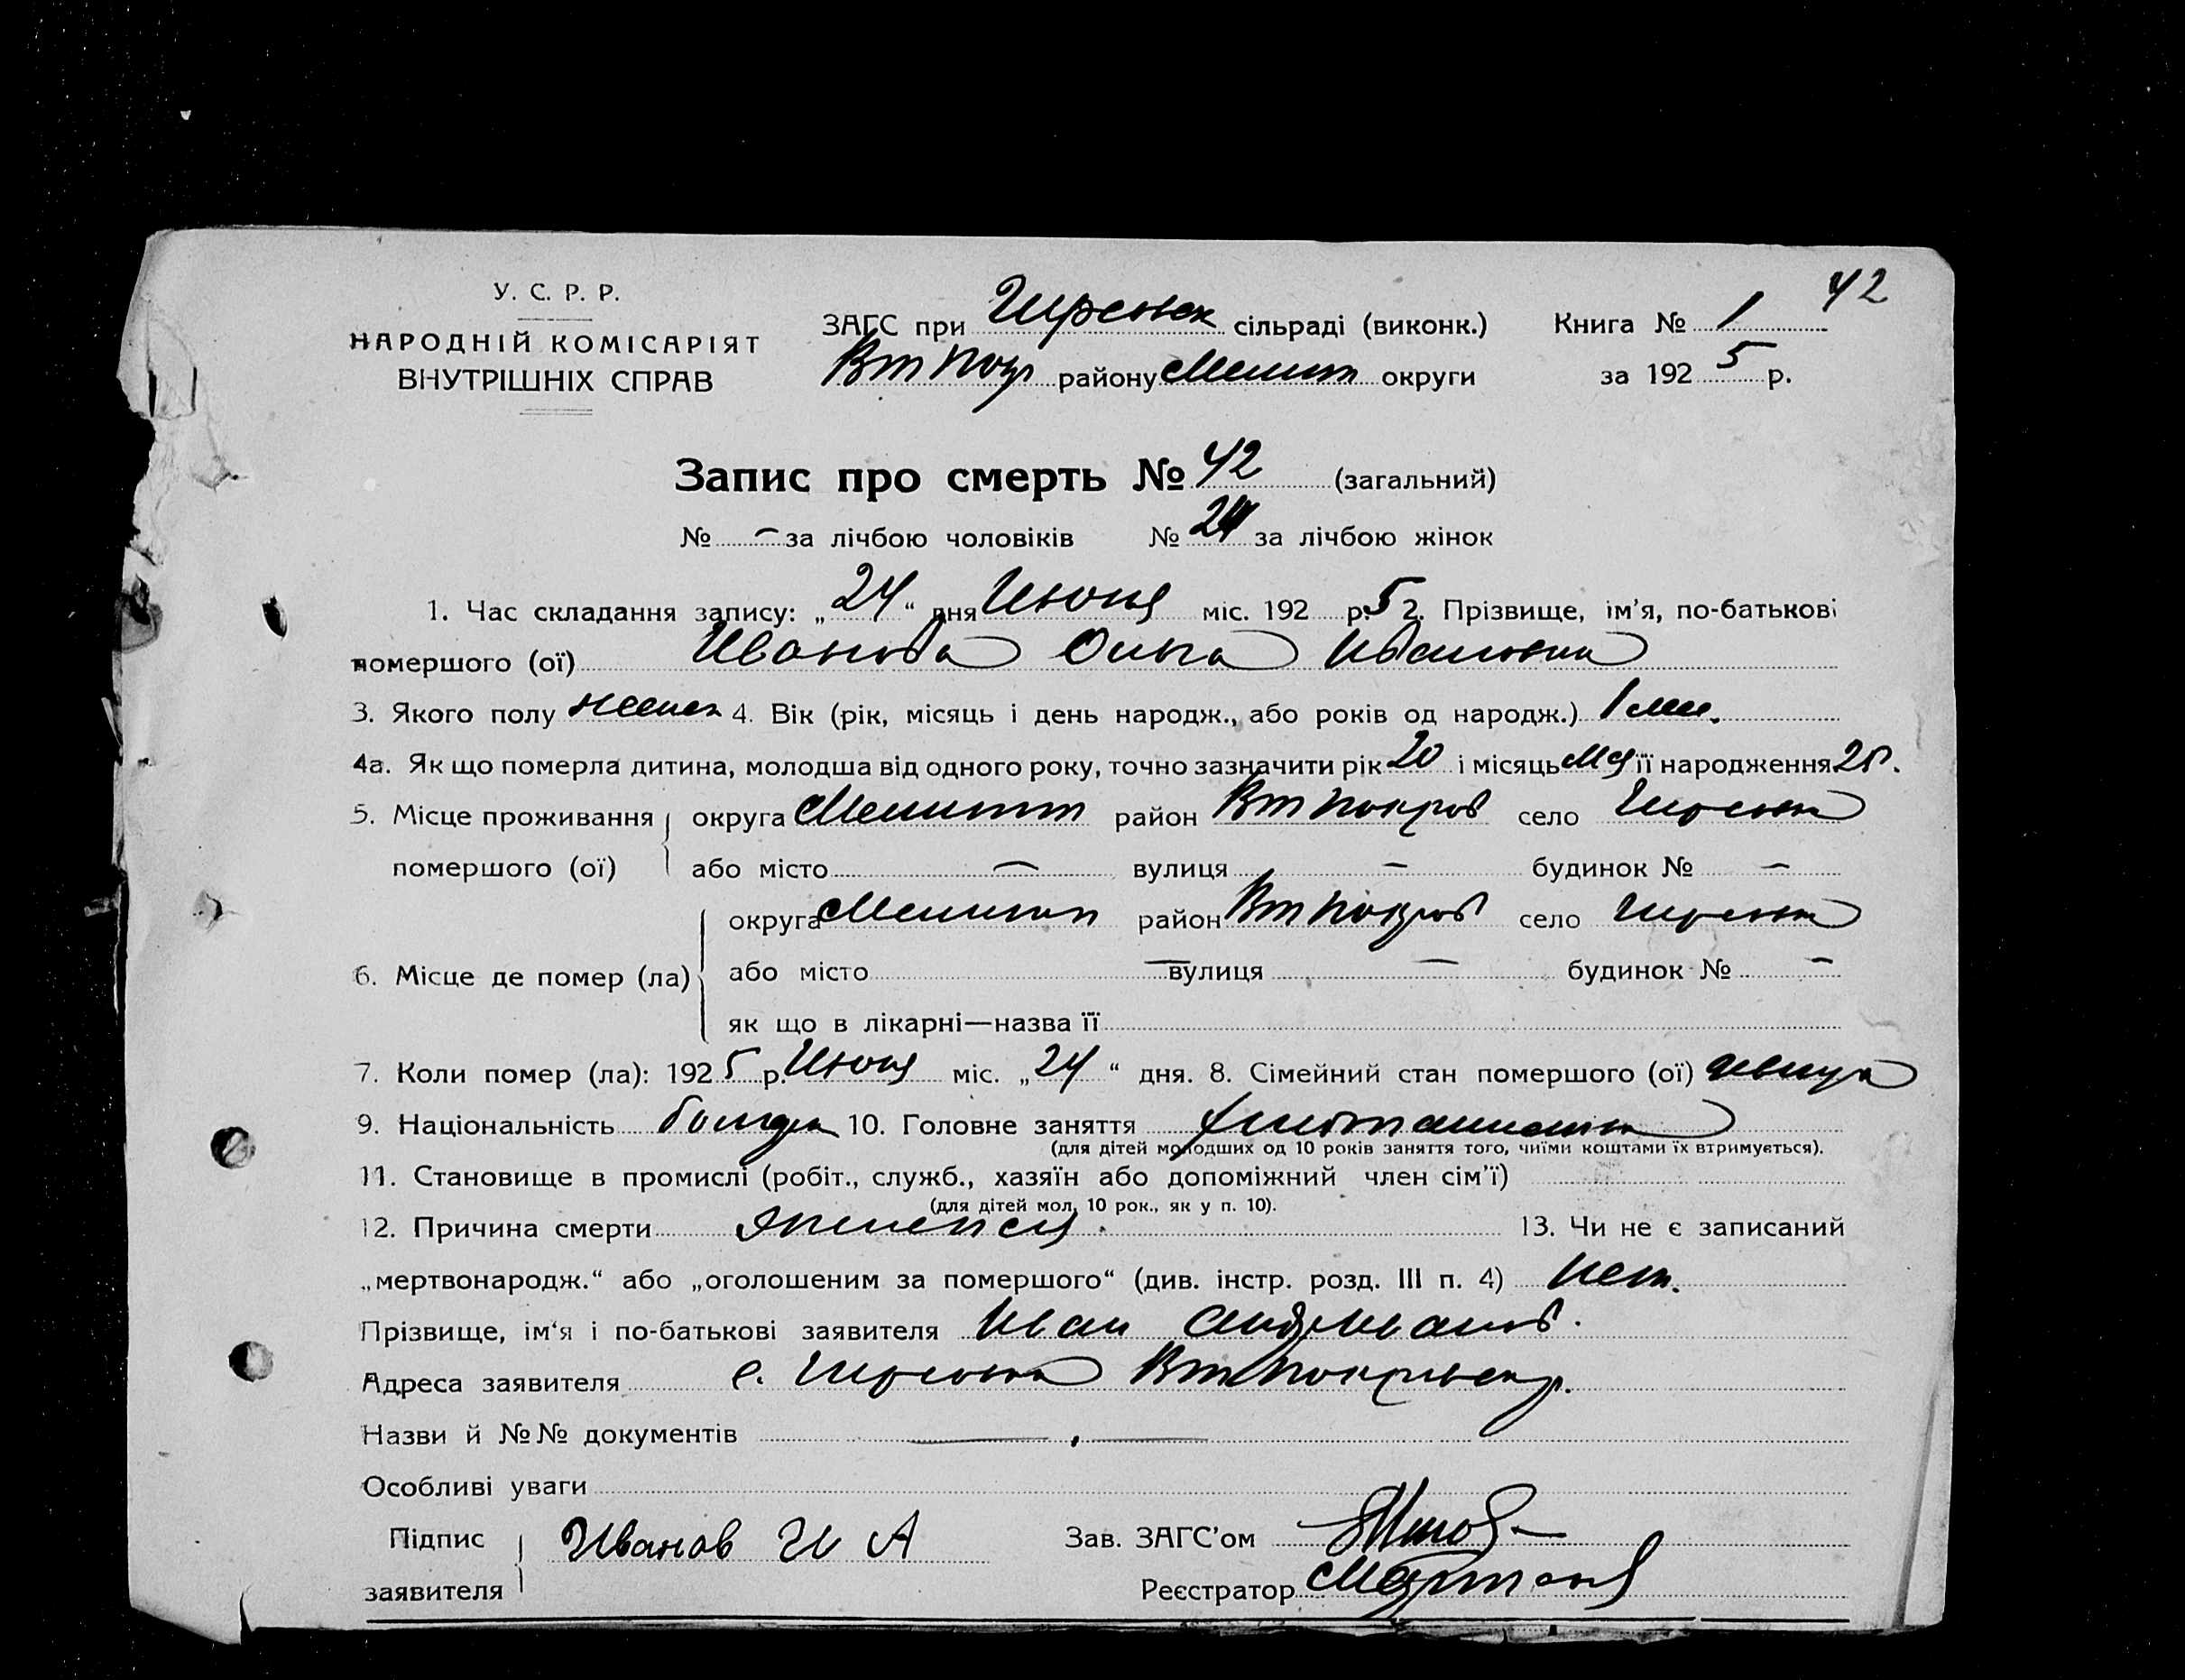 42
У. С. Р. Р.
НАРОДНІЙ КОМІСАРІЯТ
ВНУТРІШНІХ СПРАВ
ЗАГС при Гирсовск сільраді (виконк.) Книга № 1
Вт Покр району Мелит округи за 192 5 р.
Запис про смерть № 42 (загальний)
№ – за лічбою чоловіків № 24 за лічбою жінок
1. Час складання запису: „24“ дня Июня міс. 192 р. 5 2. Прізвище, ім'я, по-батькові
помершого (ої) Иванова Ольга Ивановна
3. Якого полу женск 4. Вік (рік, місяць і день народж., або років од народж.) 1 мис.
4а. Як що померла дитина, молодша від одного року, точно зазначити рік 20 і місяць Мая її народження 25.
5. Місце проживання округа Мелитоп район Вт Покров село Гирсовка
помершого (ої) або місто – вулиця – будинок № –
6. Місце де помер (ла) округа Мелитоп район Вт Покров село Гирсовка
або місто – вулиця – будинок № –
як що в лікарні—назва її
7. Коли помер (ла): 192 5 р. Июня міс. „24“ дня. 8. Сімейний стан помершого (ої)
9. Національність болгарка 10. Головне заняття
(для дітей молодших од 10 років заняття того, чиїми коштами їх втримується).
11. Становище в промислі (робіт., служб., хазяїн або допоміжний член сім'ї)
(для дітей мол. 10 рок., як у п. 10).
12. Причина смерти 13. Чи не є записаний
„мертвонародж.“ або „оголошеним за помершого“ (див. інстр. розд. III п. 4) нет.
Прізвище, ім'я і по-батькові заявителя Иван
Адреса заявителя с. Гирсовка Вт Покровск р.
Назви й №№ документів
Особливі уваги
Підпис заявителя Иванов И А Зав. ЗАГС'ом
Реєстратор